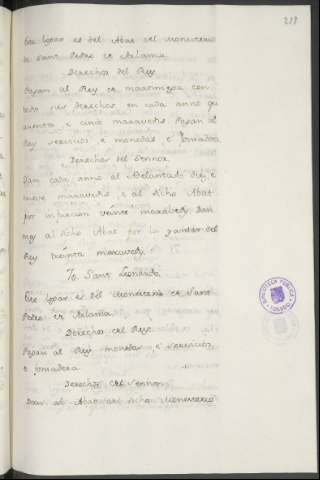 217
Este logar es del Abat del Monesterio
de Sant Pedro de Arlanza
Derechos del Rey
Pagan al Rey de martiniega con
todos sus derechos en cada anno qu
arenta e cinco maravedis Pagan al
Rey servicios e monedas e fonsadera
Derechos del Sennor
Dan cada anno al Adelantado diez e
nueve maravedis e al dicho Abat
por infurcion veinte maravedis Dan
mas al dicho Abat por la yantar del
Rey treinta maravedis
To Sant Leonardo
Este logar es del Monesterio de Sant
Pedro de Arlanza
Derechos del Rey
Pagan al Rey monedas e servicios
e fonsadera
Derechos del Sennor
Dan al Abat del dicho Monesterio
BIBLIOTECA PUBLICA
TOLEDO